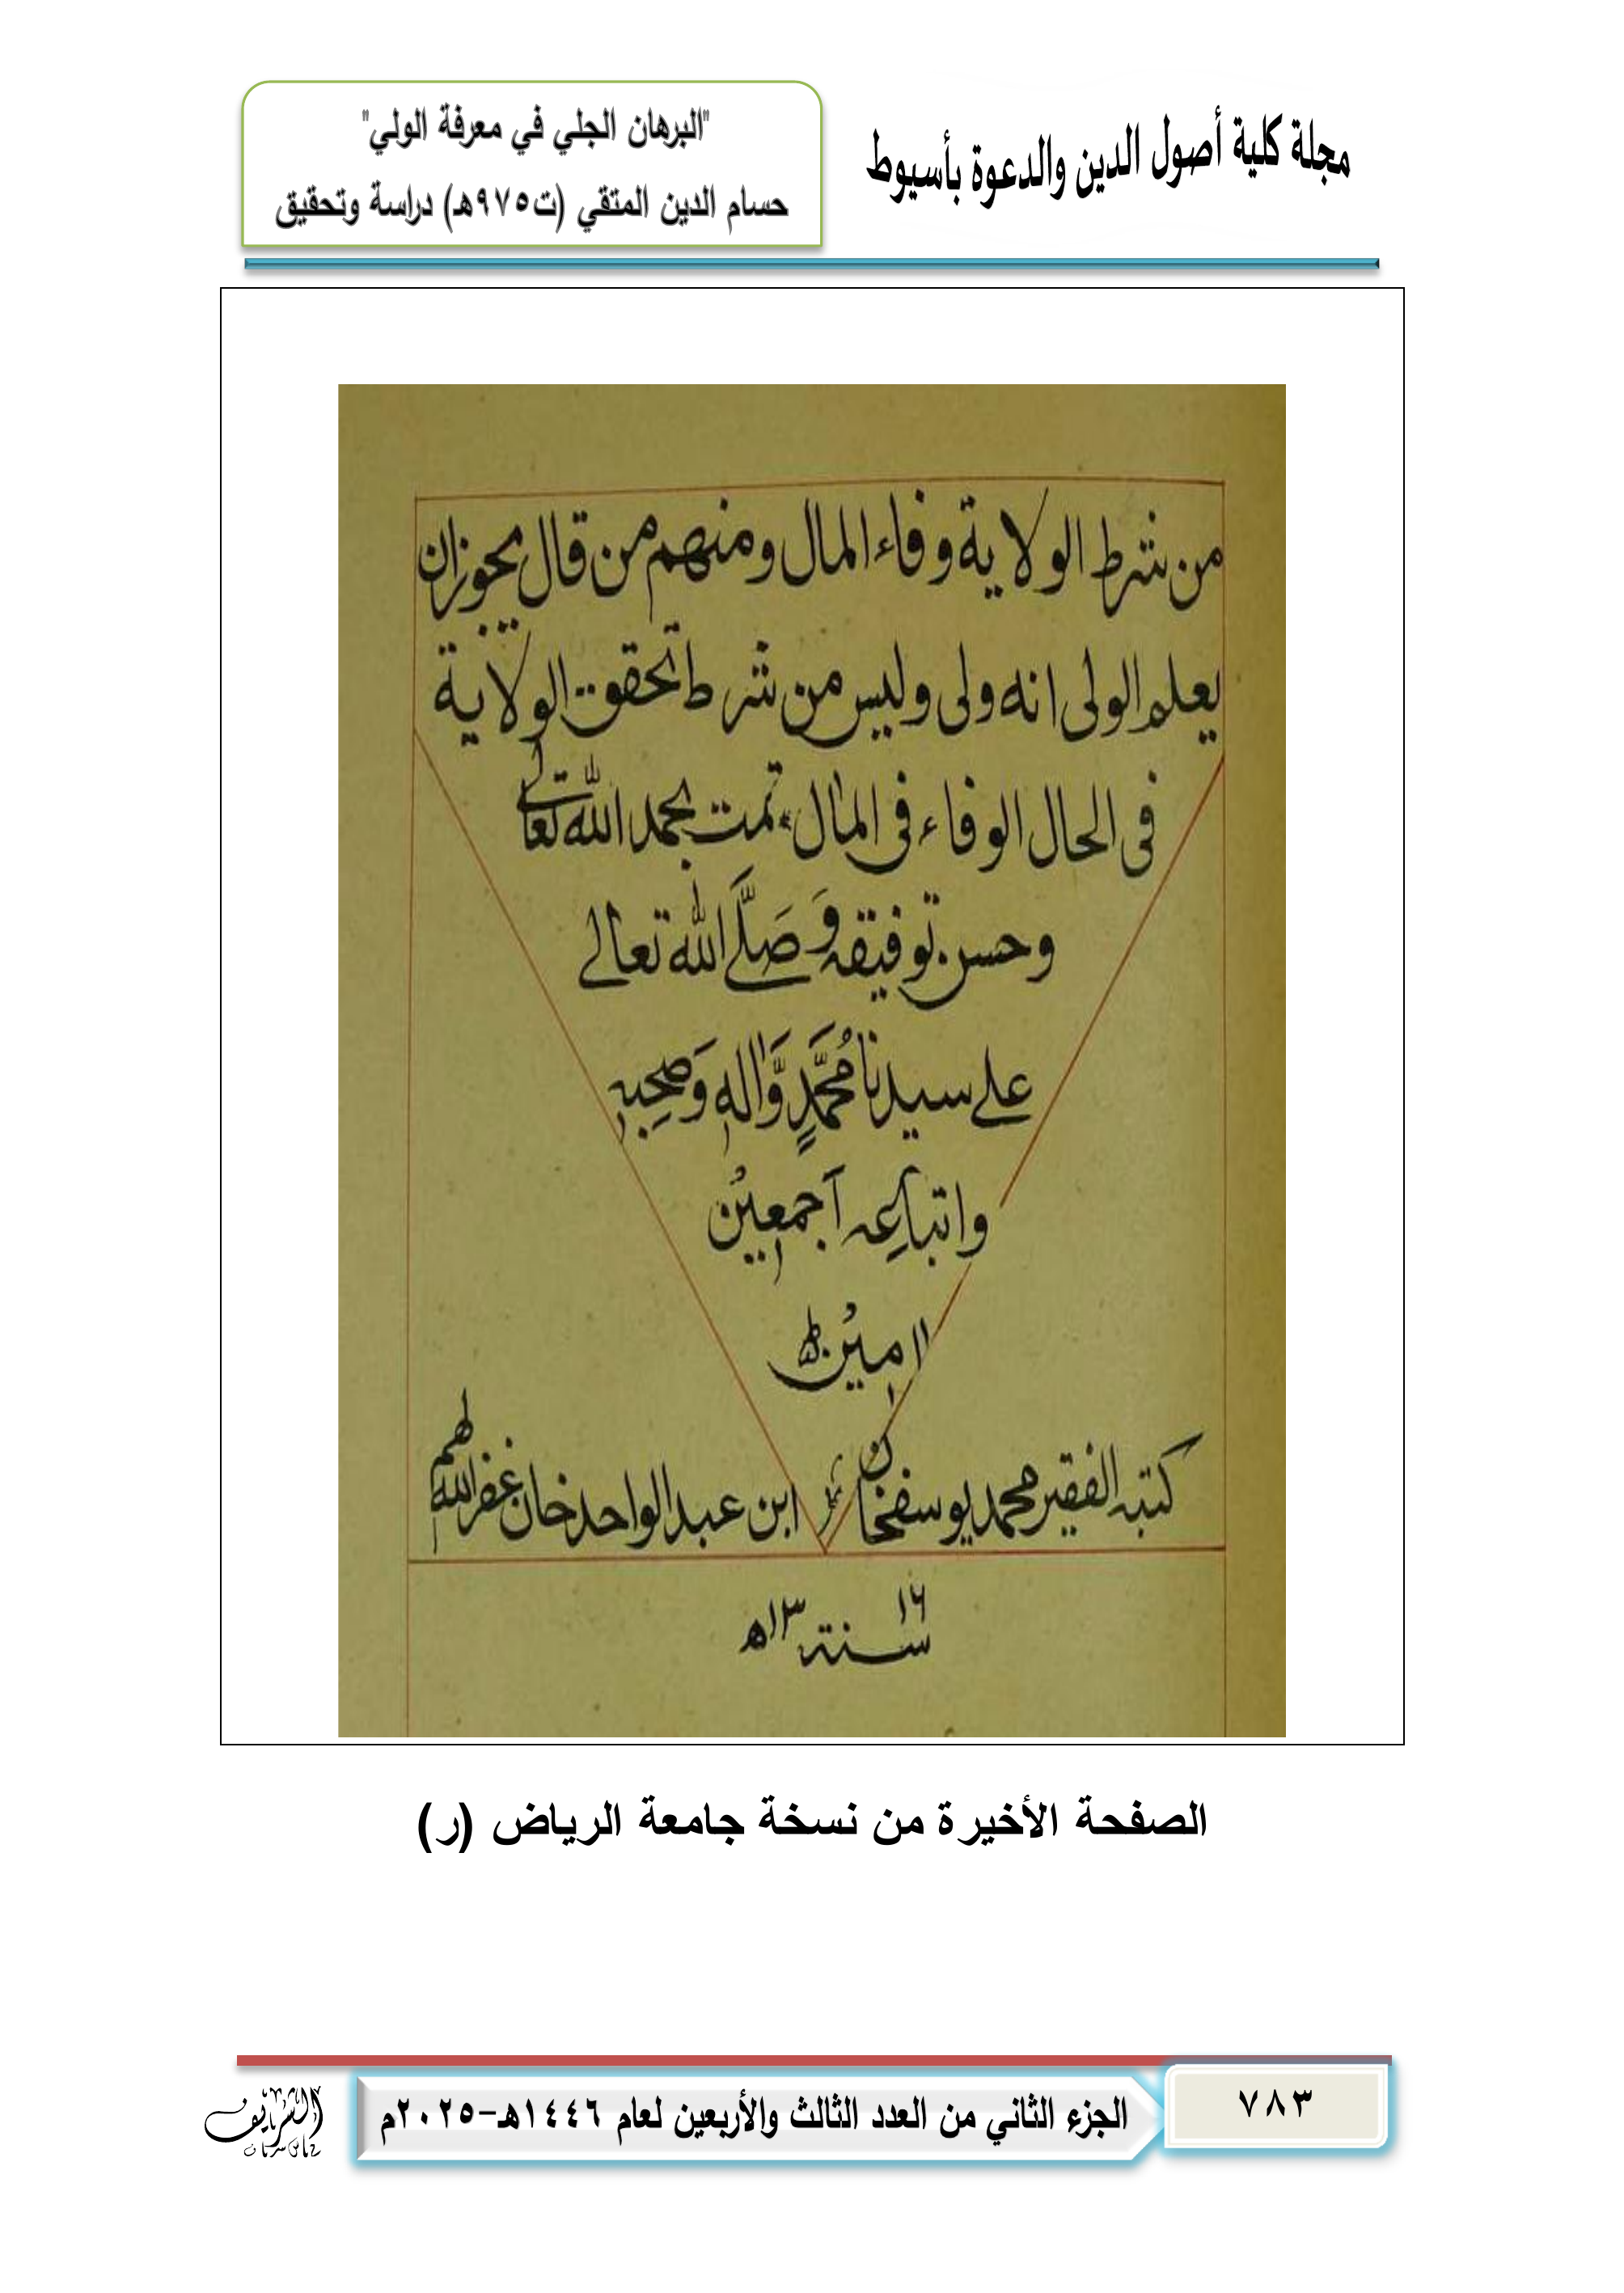 مجلة كلية أصول الدين والدعوة بأسيوط
"البرهان الجلي في معرفة الولي"
حسام الدين المتقي (ت٩٧٥هـ) دراسة وتحقيق
من شرط الولاية وفاء المال ومنهم من قال يجوز ان
يعلم الولى انه ولى وليس من شرط تحقق الولاية
فى الحال الوفاء فى المال تمت بحمد الله تعالى
وحسن توفيقه وَصَلَّے الله تعالے
علے سيدنا مُحَمَّدٍ وَّاله وَصحبِه
واتباعِه آجمعِيُن
اامِيُن
كتبه الفقير محمد يوسفخان ابن عبد الواحد خان غفر الله لهم
١٦
سنة ١٣ھ
الصفحة الأخيرة من نسخة جامعة الرياض (ر)
٧٨٣
الجزء الثاني من العدد الثالث والأربعين لعام ١٤٤٦هـ-٢٠٢٥م